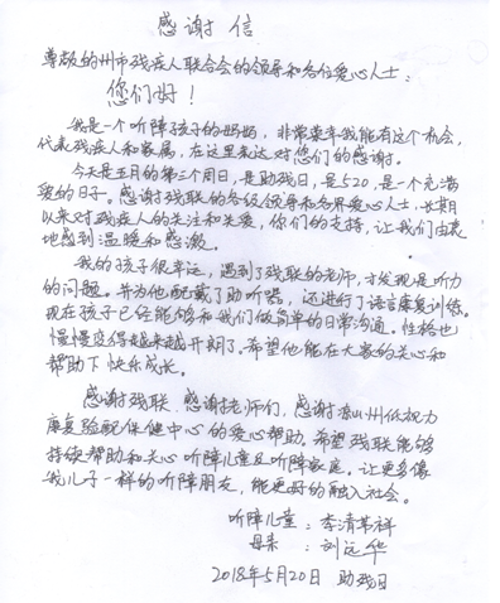 感谢信
尊敬的州市残疾人联合会的领导和各位爱心人士：
您们好！
我是一个听障孩子的妈妈，非常荣幸我能有这个机会，
代表残疾人和家属，在这里表达对您们的感谢。
今天是五月的第三个周日，是助残日，是520，是一个充满
爱的日子。感谢残联的各级领导和各界爱心人士，长期
以来对残疾人的关注和关爱，你们的支持，让我们由衷
地感到温暖和感激。
我的孩子很幸运，遇到了残联的老师，才发现是听力
的问题。并为他配戴了助听器，还进行了语言康复训练。
现在孩子已经能够和我们做简单的日常沟通。性格也
慢慢变得越来越开朗了。希望他能在大家的关心和
帮助下快乐成长。
感谢残联，感谢老师们，感谢凉山州低视力
康复验配保健中心的爱心帮助。希望残联能够
持续帮助和关心听障儿童及听障家庭，让更多像
我儿子一样的听障朋友，能更好的融入社会。
听障儿童：李清 祥
母亲：刘远华
2018年5月20日 助残日